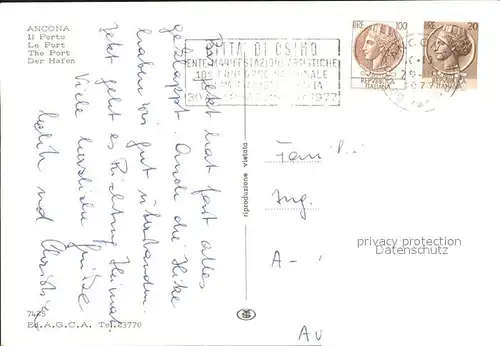 ANCONA
Il Porto
Le Port
The Port
Der Hafen
CITTA' DI OSIMO
ENTE MANIFESTAZIONI ARTISTICHE
NAZIONALE
1977
LIRE 100
REPVBBLICA
ITALIANA
LIRE 20
ITALIANA
Bis jetzt hat fast alles
geklappt. Auch die Hitze
haben wir gut überstanden.
Jetzt geht es Richtung Heimat.
Viele herzliche Grüße
und Christine
riproduzione vietata
Fam
Ing.
A-
AU
privacy protection
Datenschutz
7425
Ed. A.G.C.A. Tel. 23770